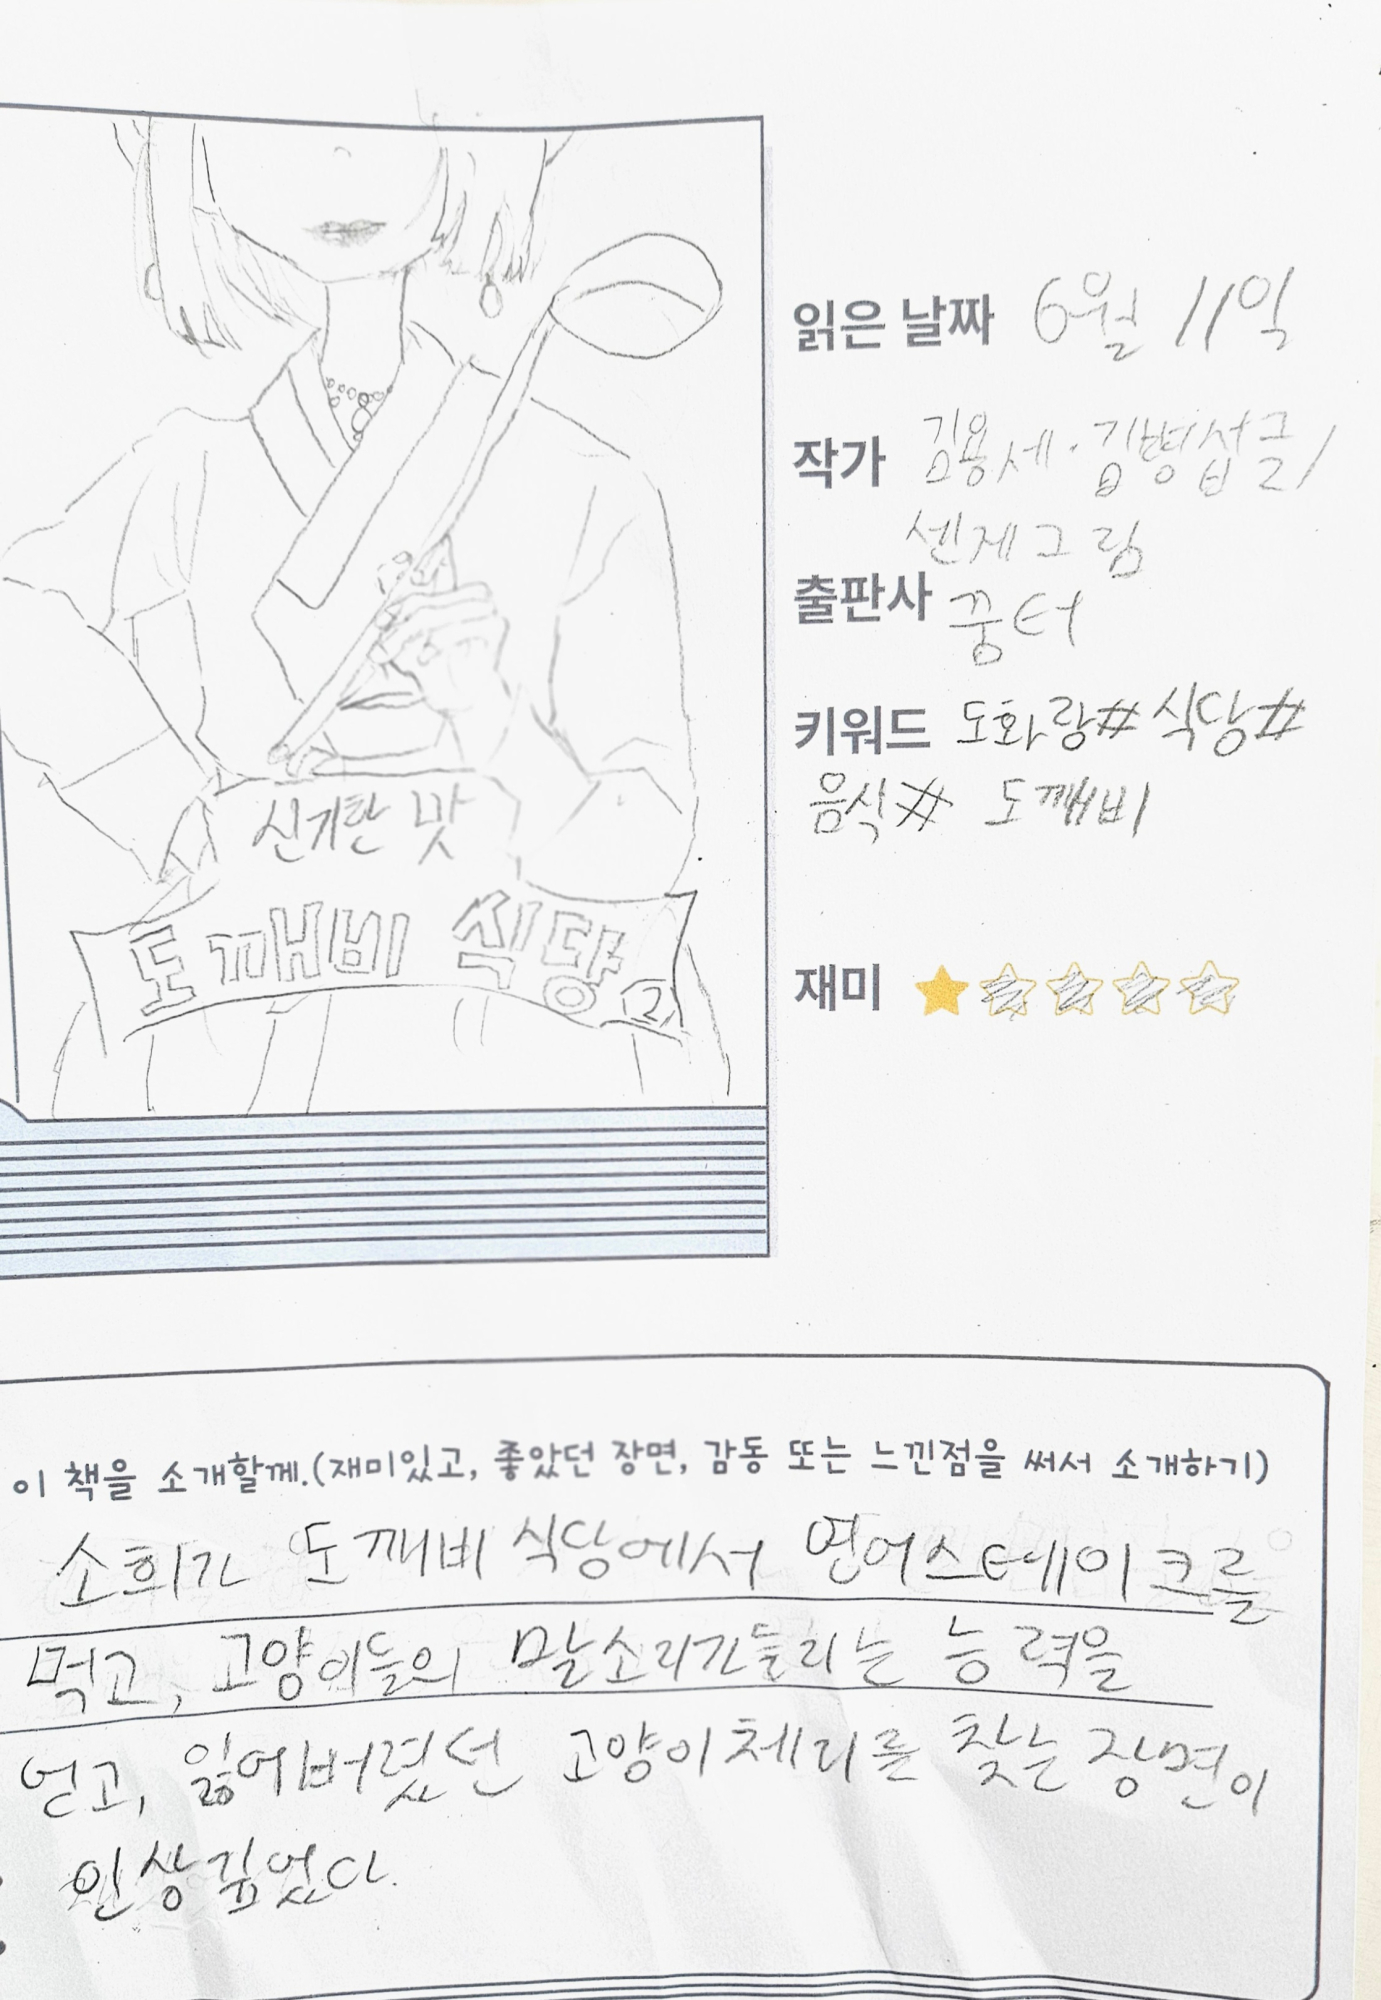 신기한 맛
도깨비 식당 2
읽은 날짜 6월 11일
작가 김용세·김병섭글/
센개그림
출판사 꿈터
키워드 도화랑# 식당#
음식# 도깨비
재미
이 책을 소개할께.(재미있고, 좋았던 장면, 감동 또는 느낀점을 써서 소개하기)
소희가 도깨비 식당에서 연어스테이크를
먹고, 고양이들의 말소리가들리는 능력을
얻고, 잃어버렸던 고양이체리를 찾는 장면이
인상깊었다.